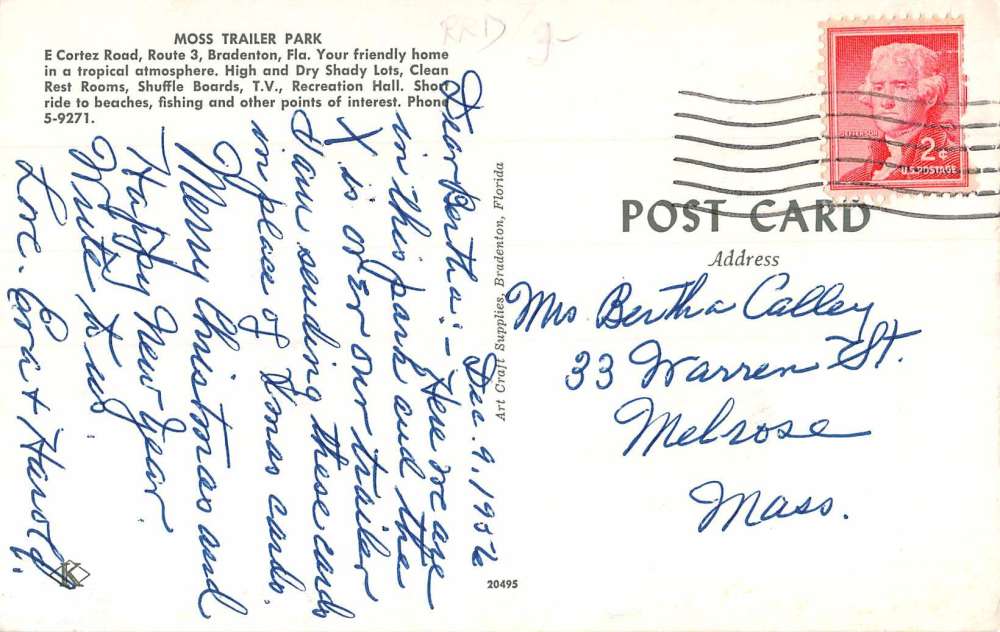 MOSS TRAILER PARK
E Cortez Road, Route 3, Bradenton, Fla. Your friendly home
in a tropical atmosphere. High and Dry Shady Lots, Clean
Rest Rooms, Shuffle Boards, T.V., Recreation Hall. Short
ride to beaches, fishing and other points of interest. Phone
5-9271.
RRD
Dec. 9, 1956
Dear Bertha:- Here we are
in this park and the
X is over our trailer
I am sending these cards
in place of Xmas cards.
Merry Christmas and
Happy New Year
Write to us
Love. Cora + Harold.
K
Art Craft Supplies, Bradenton, Florida
20495
JEFFERSON
2¢
U.S. POSTAGE
POST CARD
Address
Mrs Bertha Calley
33 Warren St.
Melrose
Mass.